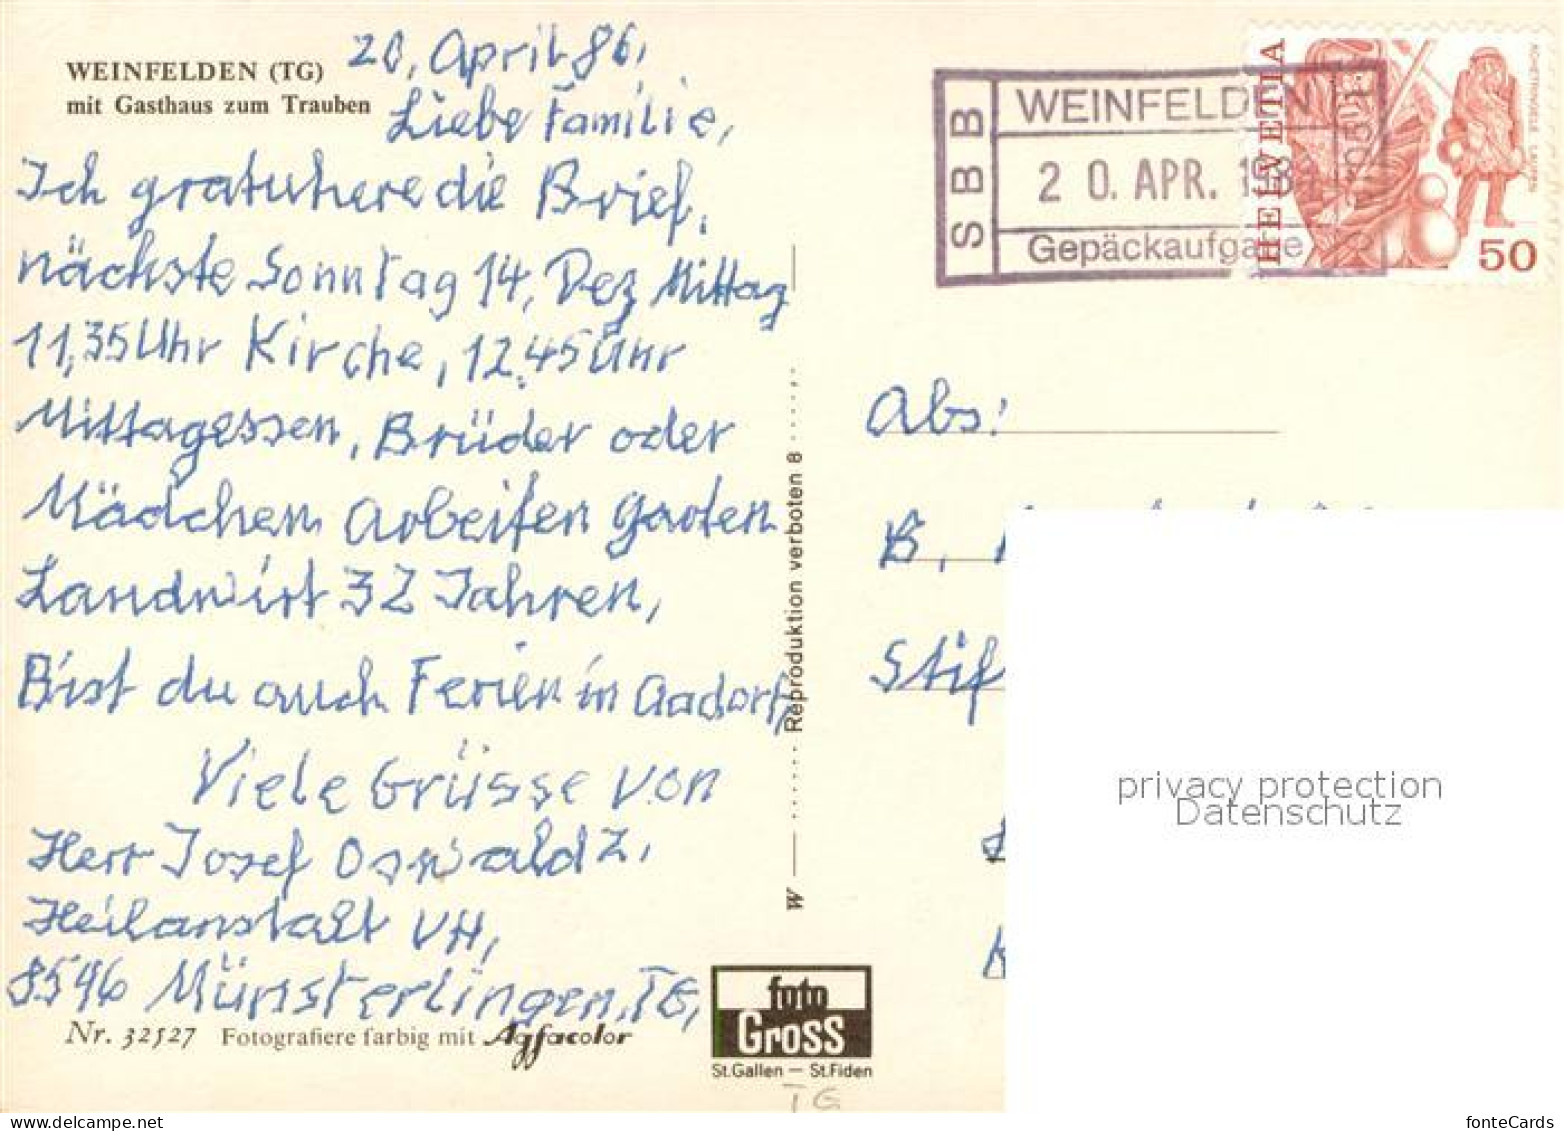 WEINFELDEN (TG)
mit Gasthaus zum Trauben
20. April 86,
Liebe Familie,
Ich gratuhere die Brief,
nächste Sonntag 14, Dez Mittag
11,35 Uhr Kirche, 12.45 Uhr
Mittagessen, Brüder oder
Mädchen Arbeiten garten
Landwirt 32 Jahren,
Bist du auch Ferien in Aadorf,
Viele Grüsse von
Herr Josef Oswald Z,
Heilanstalt VH,
8596 Münsterlingen, TG,
Nr. 32527 Fotografiere farbig mit Agfacolor
foto
GROSS
St.Gallen — St.Fiden
TG
W
Reproduktion verboten 8
SBB
WEINFELDEN
20. APR.
Gepäckaufgabe
HELVETIA
50
Abs:
B,
Stif
privacy protection
Datenschutz
fonteCards